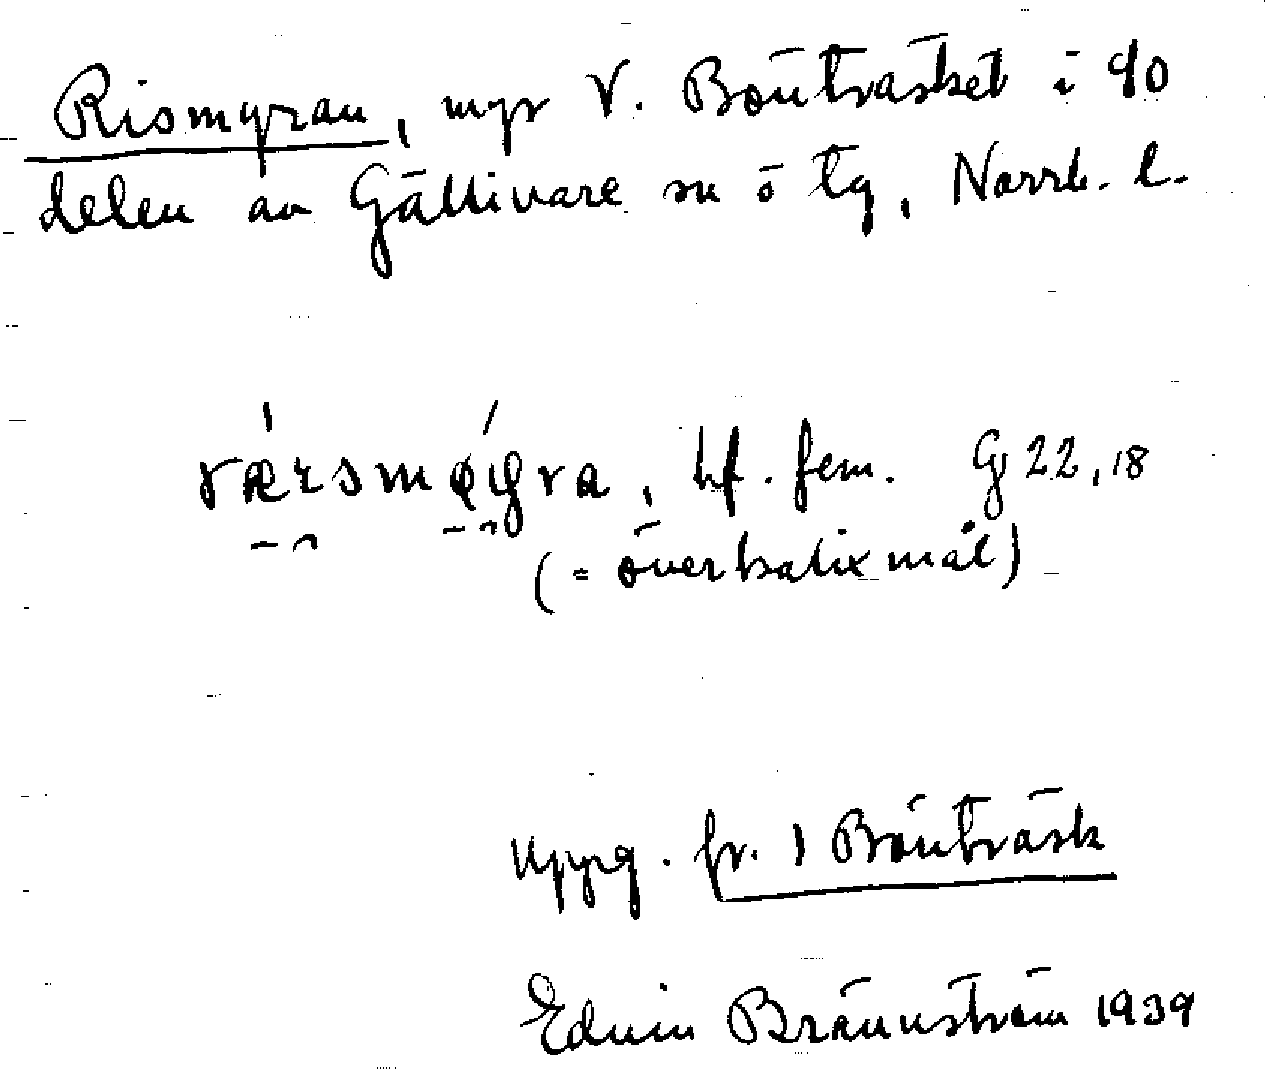 Rismyran, myr V. Böntträsket i SO
delen av Gällivare sn o tg, Norrb. l.
rærsmøyra, bf. fem. G 22,18
(= överkalixmål)
Uppg. fr. 1 Bönträsk
Edvin Brännström 1939